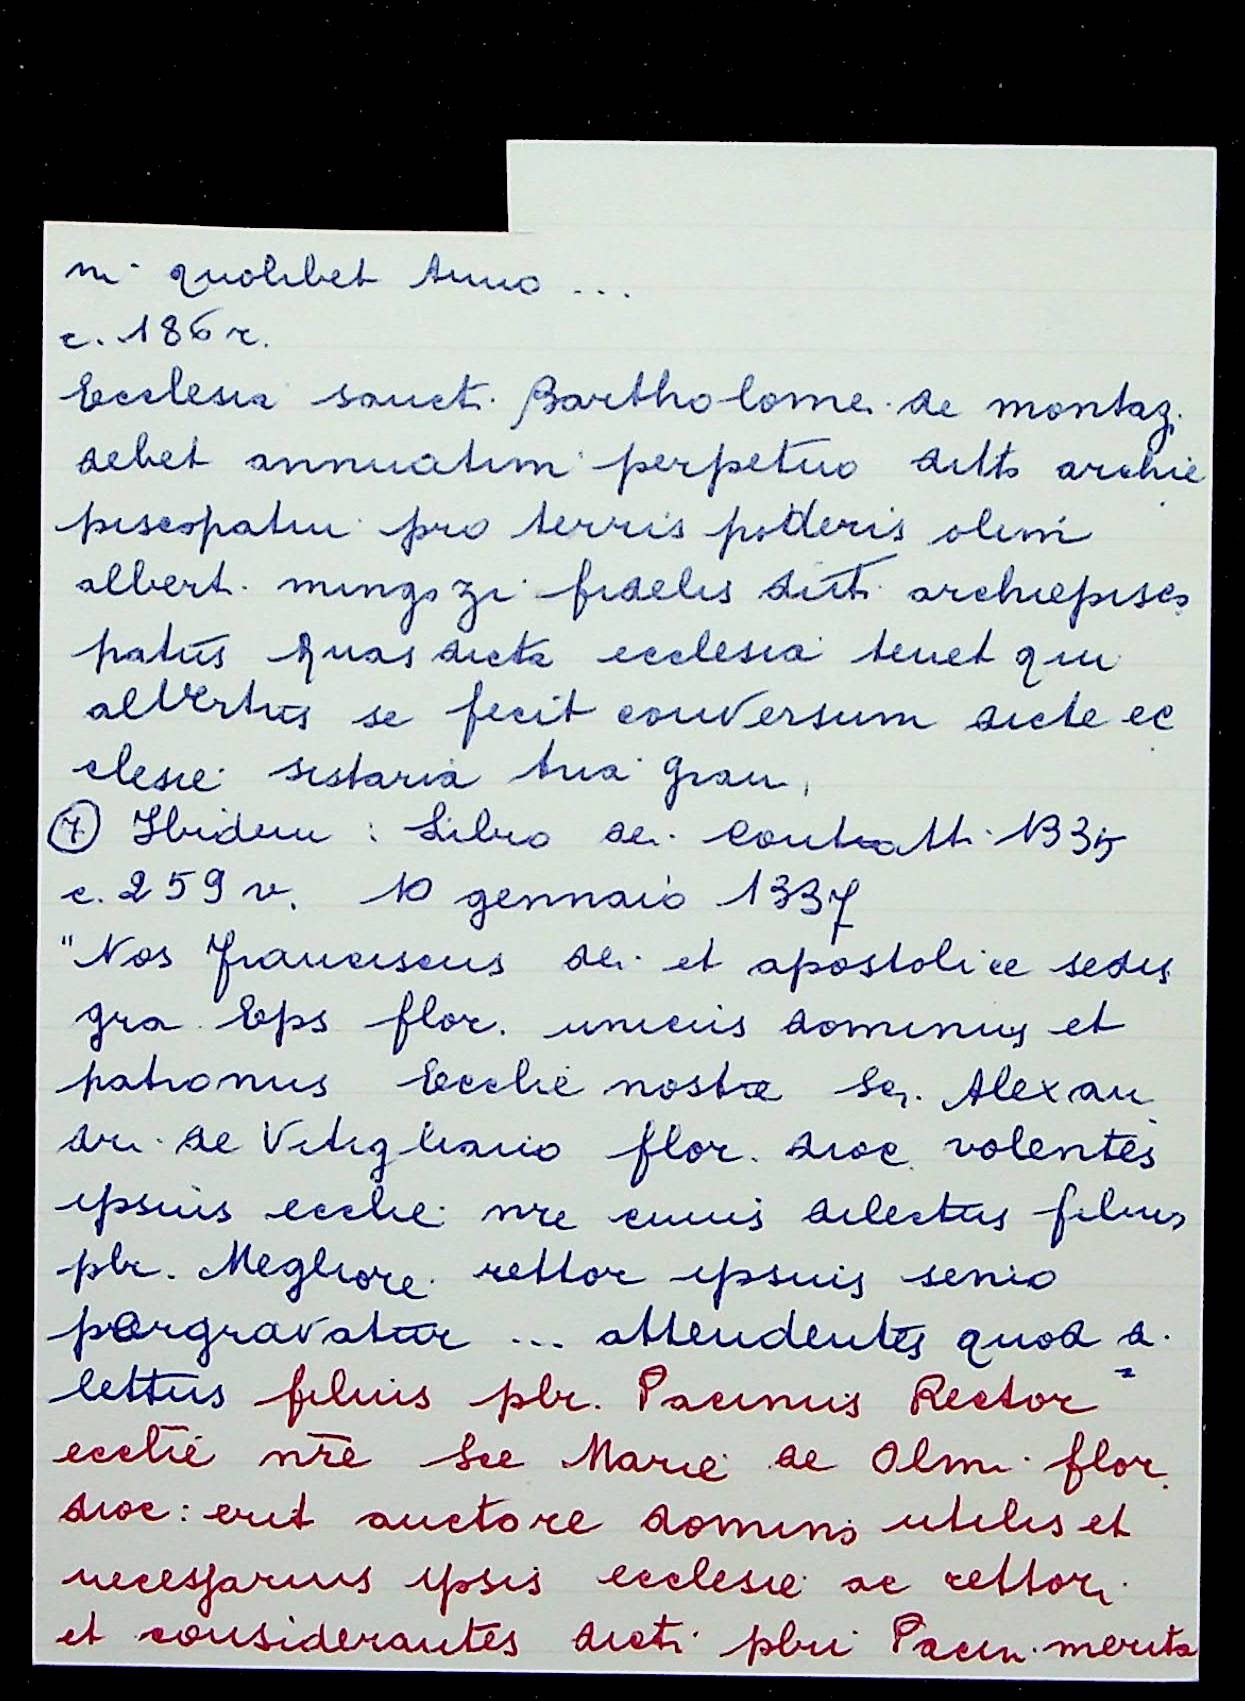 in quolibet Anno ...
c. 186 r.
Ecclesia sancti Bartholomei de montaz.
debet annuatim perpetuo ditto archie
piscopatui pro terris potteris olim
alberti mingozzi fidelis ditti archiepisco
patus Quas dicta ecclesia tenet qui
albertus se fecit conversum dicte ec
clesie sistaria tria grani
⑦ Ibidem : Libro dei Contratti 1335
c. 259 v. 10 gennaio 1337
"Nos Franciscus dei et apostolice sedis
gra Eps flor. unicus dominus et
patronus Ecclie nostre Sci. Alexan
dri de Vitigliano flor. dioc. volentes
ipsius ecclie nre cuius dilectus filius
pbr. Megliore rettor ipsius senio
pergravatur ... attendentes quod di
lettus filius pbr. Pacinus Rector
ecclie nre Sce Marie de Olmi flor.
dioc: erit auctore domino utilis et
necessarius ipsis ecclesie ac rettori
et considerantes dicti pbri Pacini merita